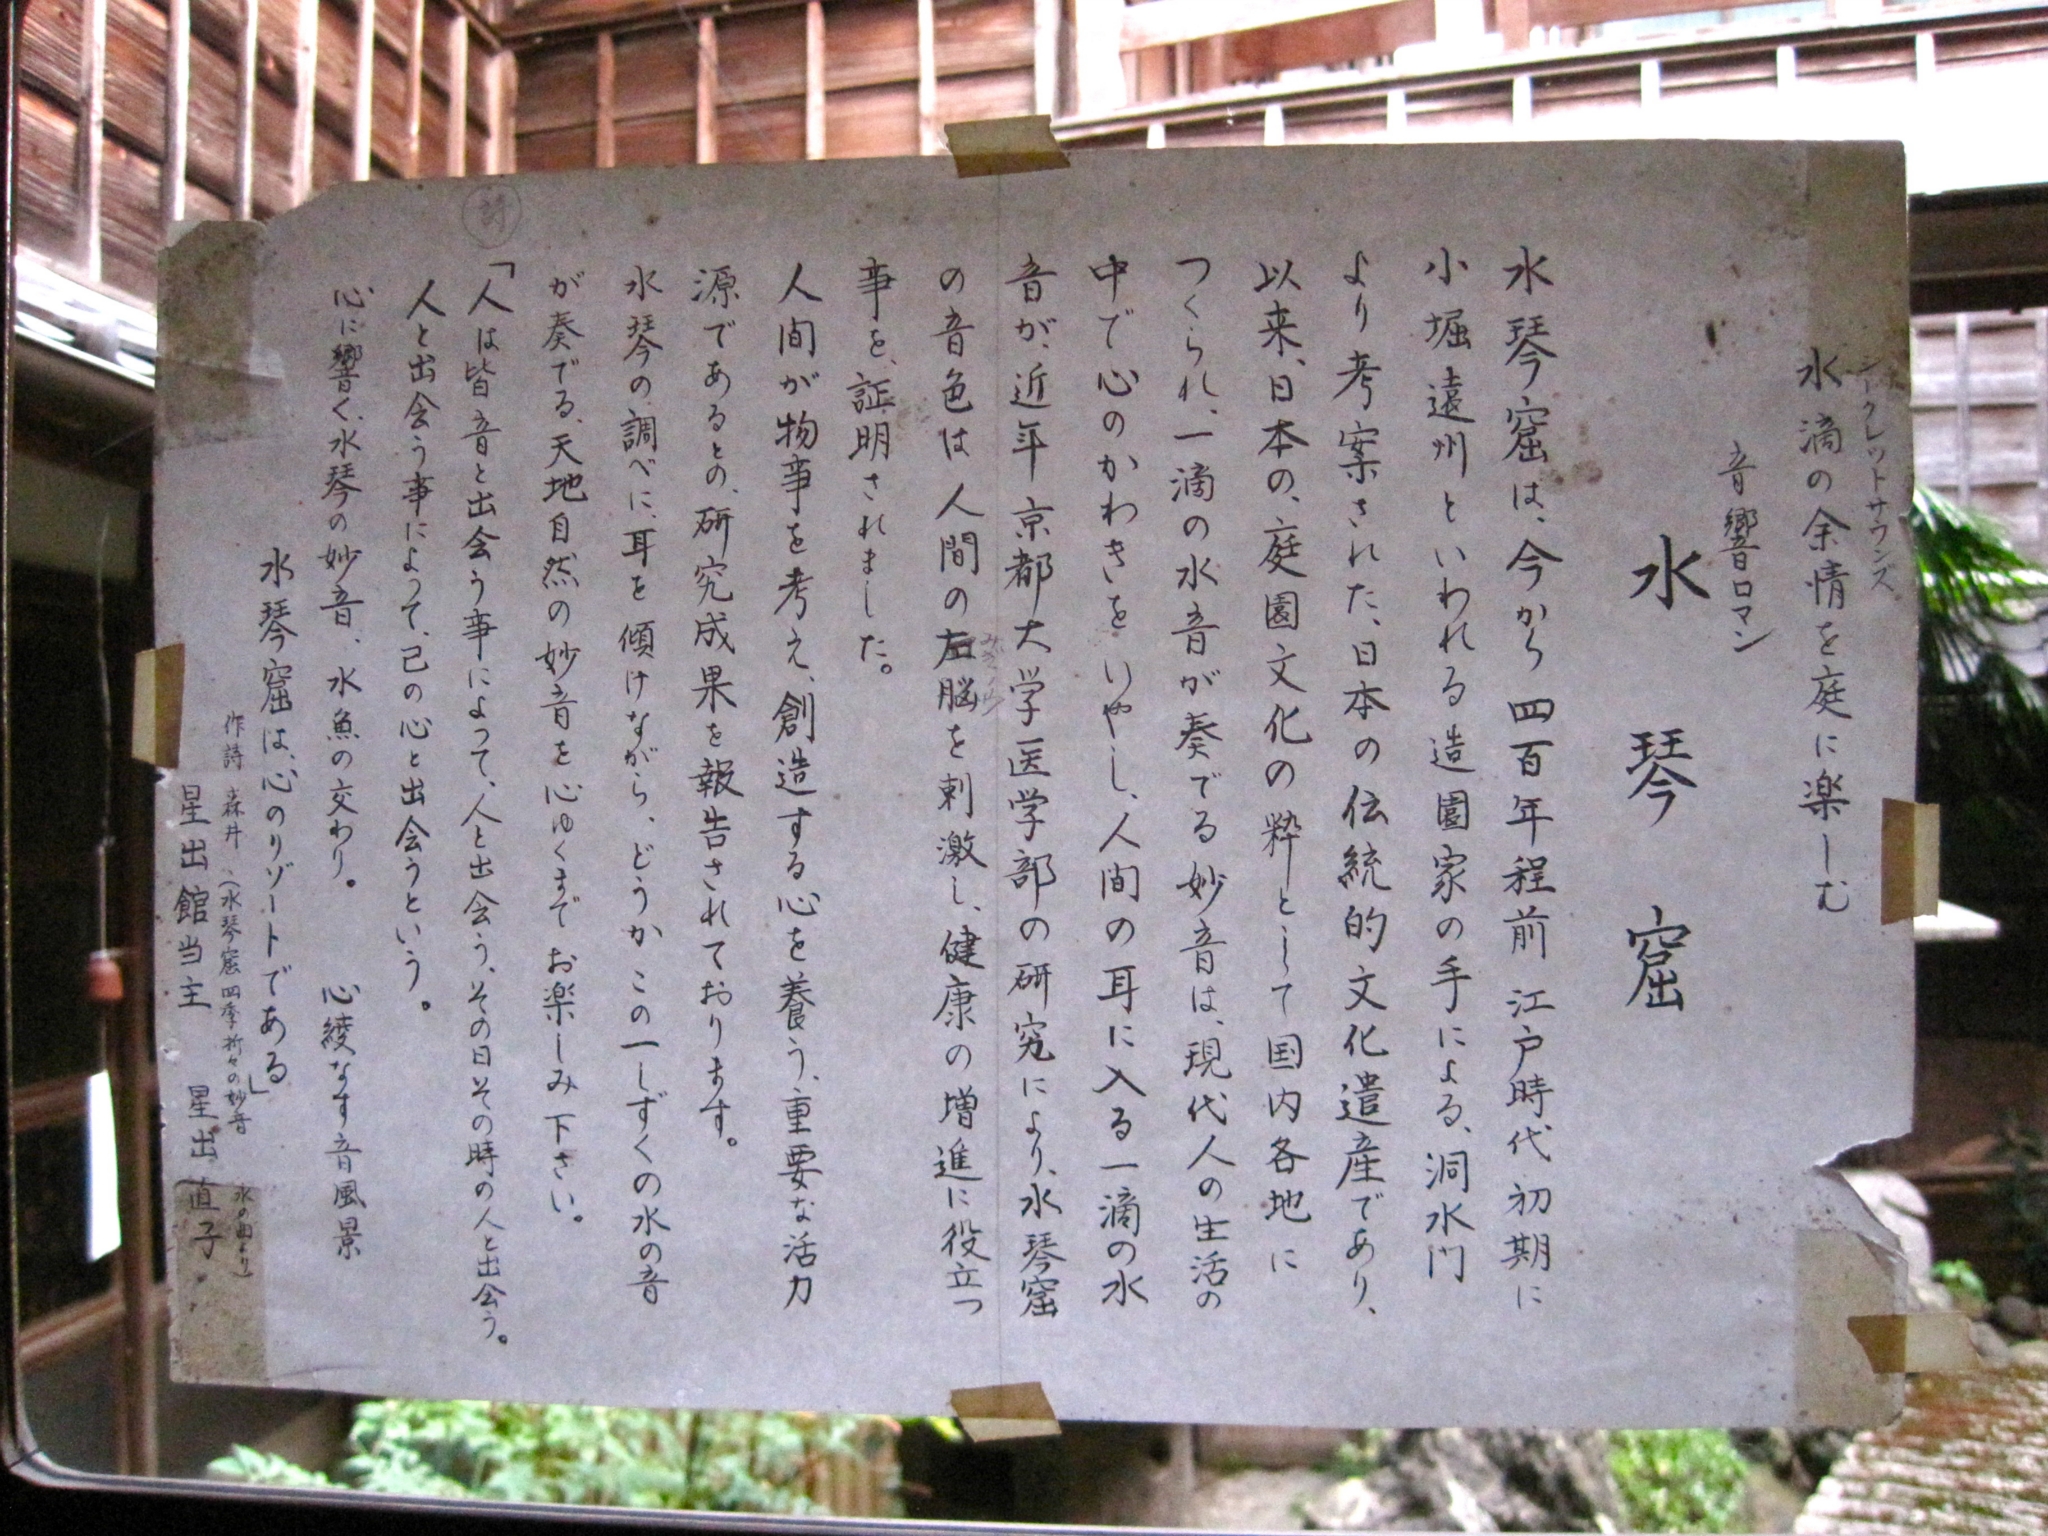 シークレットサウンズ
水滴の余情を庭に楽しむ
音響ロマン
水琴窟
水琴窟は、今から四百年程前江戸時代初期に
小堀遠州といわれる造園家の手による、洞水門
より考案された、日本の伝統的文化遺産であり、
以来、日本の、庭園文化の粋として国内各地に
つくられ、一滴の水音が奏でる妙音は、現代人の生活の
中で心のかわきをいやし、人間の耳に入る一滴の水
音が、近年京都大学医学部の研究により、水琴窟
の音色は人間の左脳を刺激し、健康の増進に役立つ
事を、証明されました。
人間が物事を考え、創造する心を養う、重要な活力
源であるとの、研究成果を報告されております。
水琴の調べに、耳を傾けながら、どうかこの一しずくの水の音
が奏でる、天地自然の妙音を心ゆくまでお楽しみ下さい。
詩
「人は皆音と出会う事によって、人と出会う、その日その時の人と出会う。
人と出会う事によって、己の心と出会うという。
心に響く、水琴の妙音、水魚の交わり。 心綾なす音風景
水琴窟は、心のリゾートである」
作詩 森井 (水琴窟四季折々の妙音 水の曲より)
星出館当主 星出直子